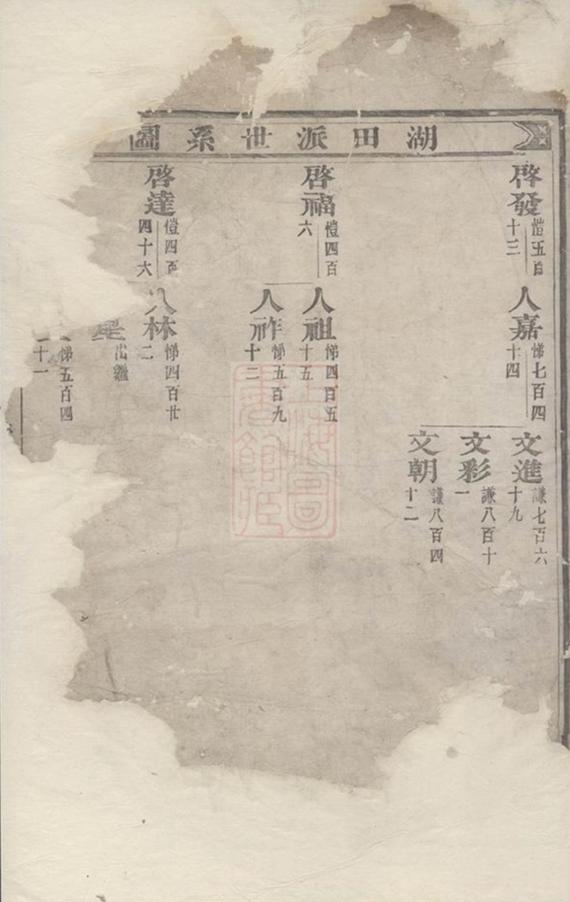 湖田派世系圖
啓發 愷五百十三
人嘉 悌七百四十四
文進 謙七百六十九
文彩 謙八百十一
文朝 謙八百四十二
啓福 愷四百六
人祖 悌四百五十五
人祚 悌五百九十二
啓達 愷四百四十六
人林 悌四百廿二
出繼
悌五百四十一
上海圖書館藏